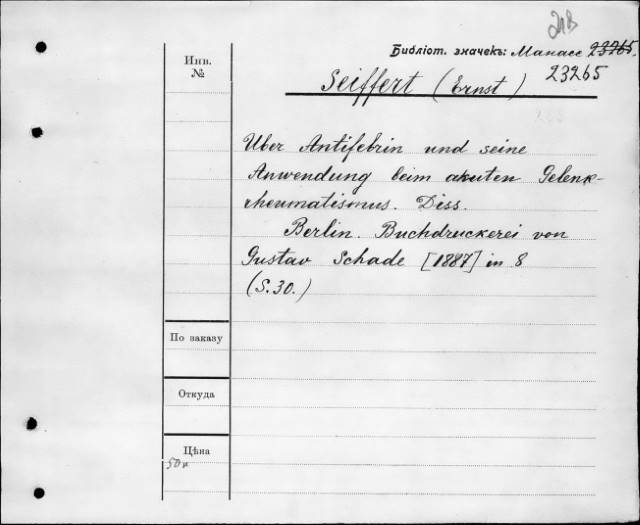 Библіот. значекъ: Манасс 23265.
23265
Инв.
№
Seiffert (Ernst)
Über Antifebrin und seine
Anwendung beim akuten Gelenk-
rheumatismus. Diss.
Berlin. Buchdruckerei von
Gustav Schade [1887] in 8
(S. 30.)
По заказу
Откуда
Цѣна